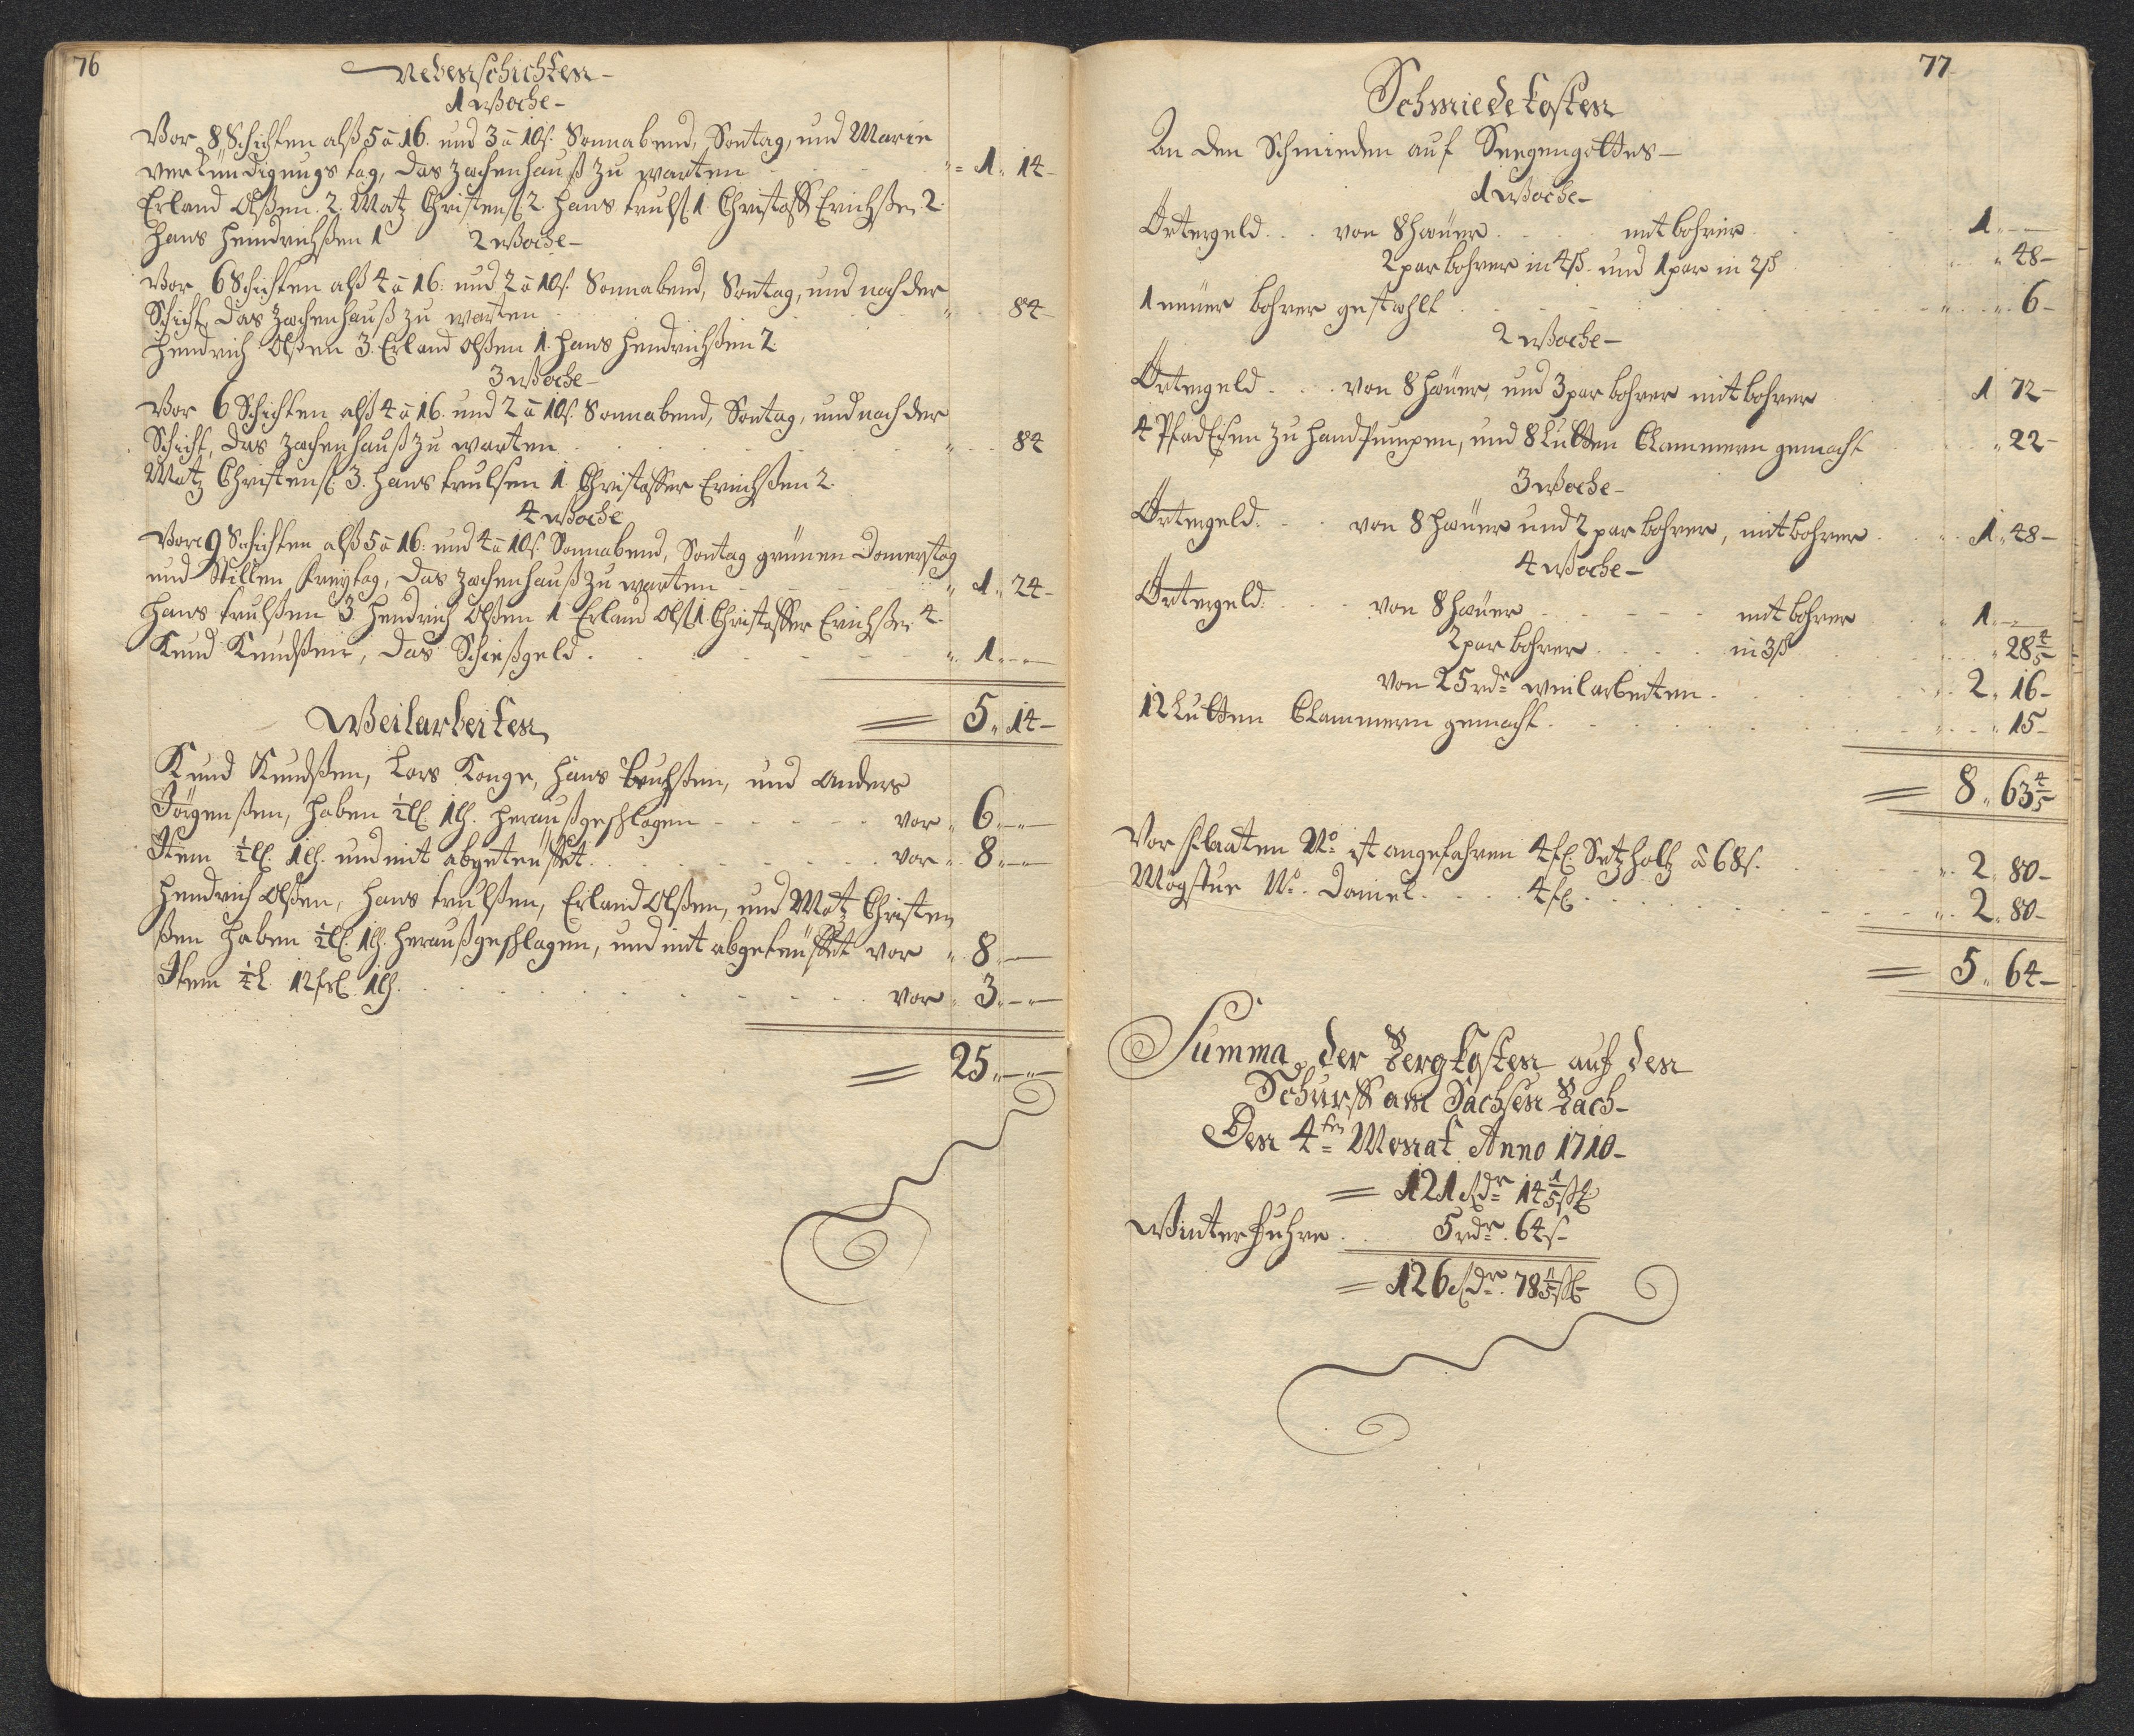 76
Nebenschichten
1 Woche
Vor 8 Schichten alß 5 â 16. und 3 â 10 s. Sonnabend, Sontag, und Marie
verkündigungs tag, das Zechenhauß zu warten 1. 14
Erland Olßen. 2. Matz Christens: 2. Hans truls: 1. Christoff Erichßen 2.
Hans Hendrichßen 1 2 Woche
Vor 6 Schichten alß 4 â 16. und 2 â 10 s. Sonnabend, Sontag, und nach der
Schicht, das Zechenhauß zu warten 84
Hendrich Olßen 3. Erland Olßen 1. Hans Hendrichßen 2.
3 Woche
Vor 6 Schichten alß 4 â 16. und 2 â 10 s. Sonnabend, Sontag, und nach der
Schicht, das Zechenhauß zu warten 84
Matz Christens: 3. Hans trulsen 1. Christoffer Erichßen 2.
4 Woche
Vor 9 Schichten alß 5 â 16. und 4 â 10 s. Sonnabend, Sontag grünen Donnerstag
und Stillen Freytag, das Zechenhauß zu warten 1. 24
Hans trulßen 3. Hendrich Olßen 1 Erland Ols: 1. Christoffer Erichßen 4.
Knud Knudßen, das Schießgeld. 1.
5. 14
Weilarbeiten
Knud Knudßen, Lars Konge, Hans und Anders
Jörgenßen, haben ½ 1 herausgeschlagen vor 6.
Item ½ 1 und mit abgeteuffet. vor 8.
Hendrich Olßen, Hans trulßen, Erland Olßen, und Matz Christen
ßen haben ½ 1 herausgeschlagen, und mit abgeteuffet vor 8.
Item 12 vor 3.
25.
77
Schmiedekosten
An den Schmieden auf Seegengottes
1 Woche
Örtergeld. von 8 Häüer mit bohrer 1.
2 par bohrer in 4 ß. und 1 par in 2 ß 48
1 neüer bohrer gestahlt 6
2 Woche
Örtergeld. von 8 Häüer, und 3 par bohrer mit bohrer 1 72
4 PfadEisen zu Handpumpen, und 8 Lutten Clammern gemacht 22
3 Woche
Örtergeld. von 8 Häüer und 2 par bohrer, mit bohrer 1. 48
4 Woche
Örtergeld: von 8 Häüer mit bohrer 1.
2 par bohrer in 3 ß 28 4/5
von 25 rdr weilarbeiten 2. 16
12 Lutten Clammern gemacht. 15
8. 63 4/5
Vor No. ist angefahren 4 Setzholtz â 68 s. 2. 80
Mogstue No. Daniel. 4 2. 80
5. 64
Summa der Bergkosten auf den
Schurff am Sachsen Bach
Den 4ten Monat Anno 1710
121 rdr 14 1/5 ß
Winterfuhre. 5 rdr. 64 s
126 rdr. 78 1/5 ß